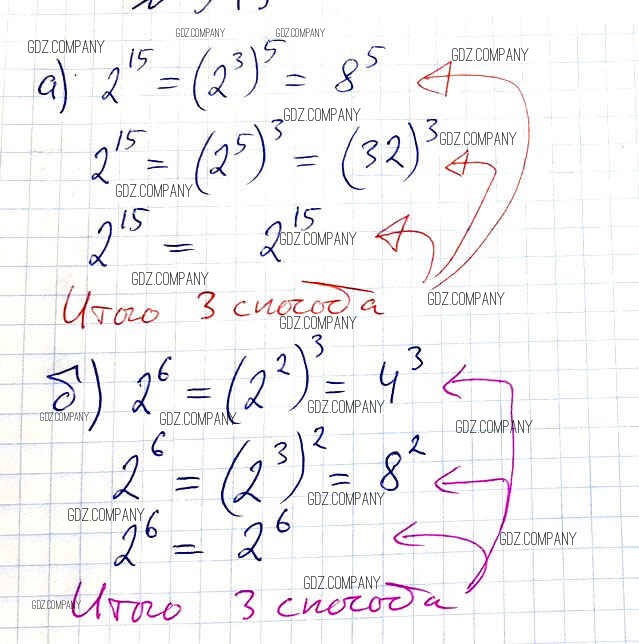 GDZ.COMPANY GDZ.COMPANY
GDZ.COMPANY GDZ.COMPANY
а) 2^15 = (2^3)^5 = 8^5
GDZ.COMPANY
2^15 = (2^5)^3 = (32)^3 GDZ.COMPANY
GDZ.COMPANY
2^15 = 2^15 GDZ.COMPANY
GDZ.COMPANY
GDZ.COMPANY
Итого 3 способа
GDZ.COMPANY
б) 2^6 = (2^2)^3 = 4^3
GDZ.COMPANY GDZ.COMPANY GDZ.COMPANY
GDZ.COMPANY
2^6 = (2^3)^2 = 8^2
GDZ.COMPANY
GDZ.COMPANY
2^6 = 2^6 GDZ.COMPANY
GDZ.COMPANY
GDZ.COMPANY Итого 3 способа